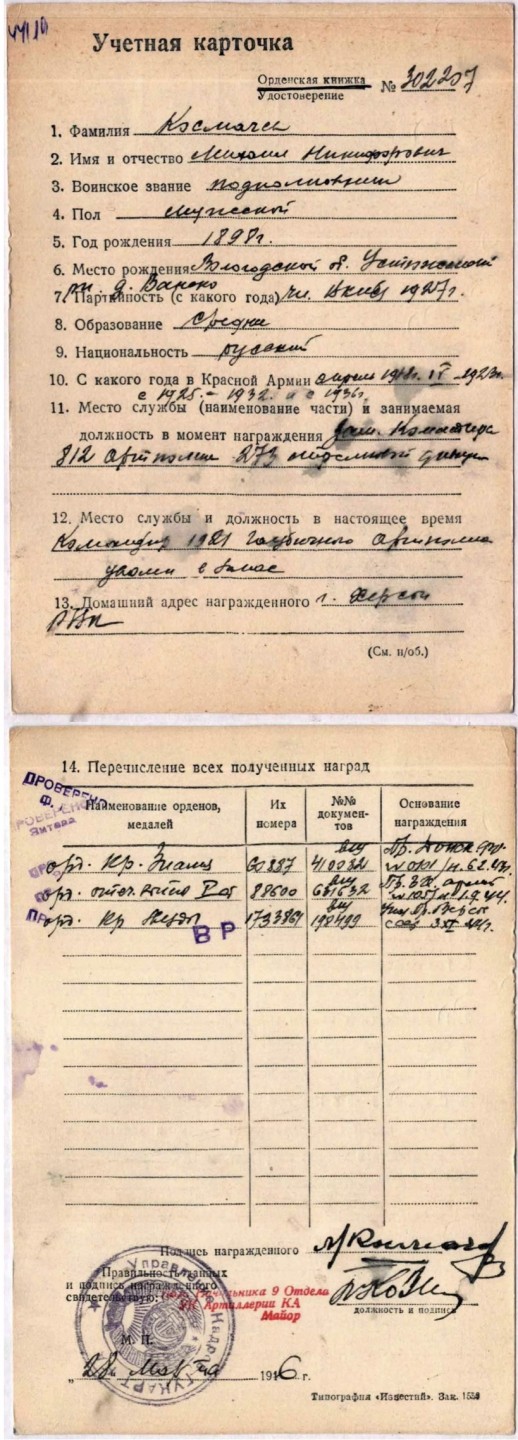 Учетная карточка
Орденская книжка
Удостоверение № 302207
1. Фамилия
2. Имя и отчество Михаил Никифорович
3. Воинское звание подполковник
4. Пол мужской
5. Год рождения 1898г.
6. Место рождения Вологодской об. Устюженский
рн. д.
7. Партийность (с какого года) чл. ВКП(б) 1927г.
8. Образование средн
9. Национальность русский
10. С какого года в Красной Армии апрель 1918г. 1923г.
с 1925.- 1932. и с 1936г.
11. Место службы (наименование части) и занимаемая
должность в момент награждения зам. Командира
812 Артполка 273 стрелковой
12. Место службы и должность в настоящее время
Командир 1921 Гаубичного Артполка
уволен в запас
13. Домашний адрес награжденного г. Херсон
(См. н/об.)
14. Перечисление всех полученных наград
ПРОВЕРЕНО
Наименование орденов, медалей
Их номера
№№ документов
Основание награждения
орд. Кр. Знамя 60887 410032 Пр. Донск фр.
орд. отеч. войны 88600 681632
орд. Кр Звезды 198499
ВР
Подпись награжденного
Правильность данных
и подпись награжденного
свидетельствую:
Начальника 9 Отдела
УК Артиллерии КА
Майор
должность и подпись
М. П.
„28" Марта 1946 г.
Типография «Известий». Зак.